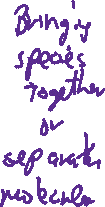 Bringing
species
together
or
separate
molecular